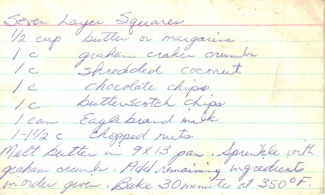 Seven Layer Squares
1/2 cup butter or margarine
1 c graham craker crumbs
1 c shredded coconut
1 c chocolate chips
1 c butterscotch chips
1 can Eaglebrand milk
1-1 1/2 c chopped nuts
Melt butter in 9X13 pan. Sprinkle with
graham crumbs. Add remaining ingredients
in order given. Bake 30 minute at 350°F.